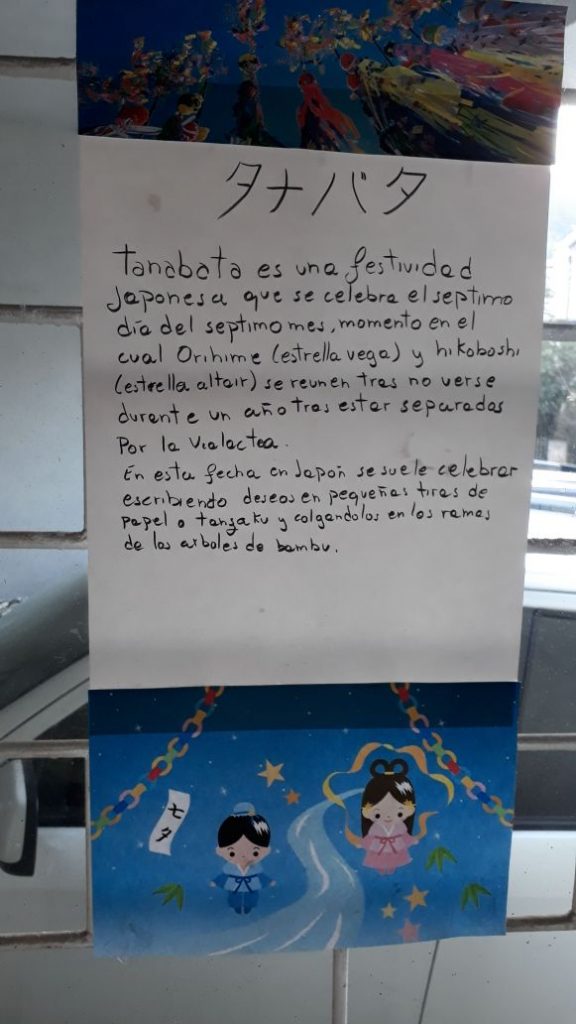 タナバタ
Tanabata es una festividad
Japonesa que se celebra el septimo
día del septimo mes, momento en el
cual Orihime (estrella vega) y hikoboshi
(estrella altair) se reunen tras no verse
durante un año tras estar separados
Por la Vialactea.
En esta fecha en Japón se suele celebrar
escribiendo deseos en pequeñas tiras de
papel o tanzaku y colgandolos en las ramas
de los arboles de bambu.
七夕